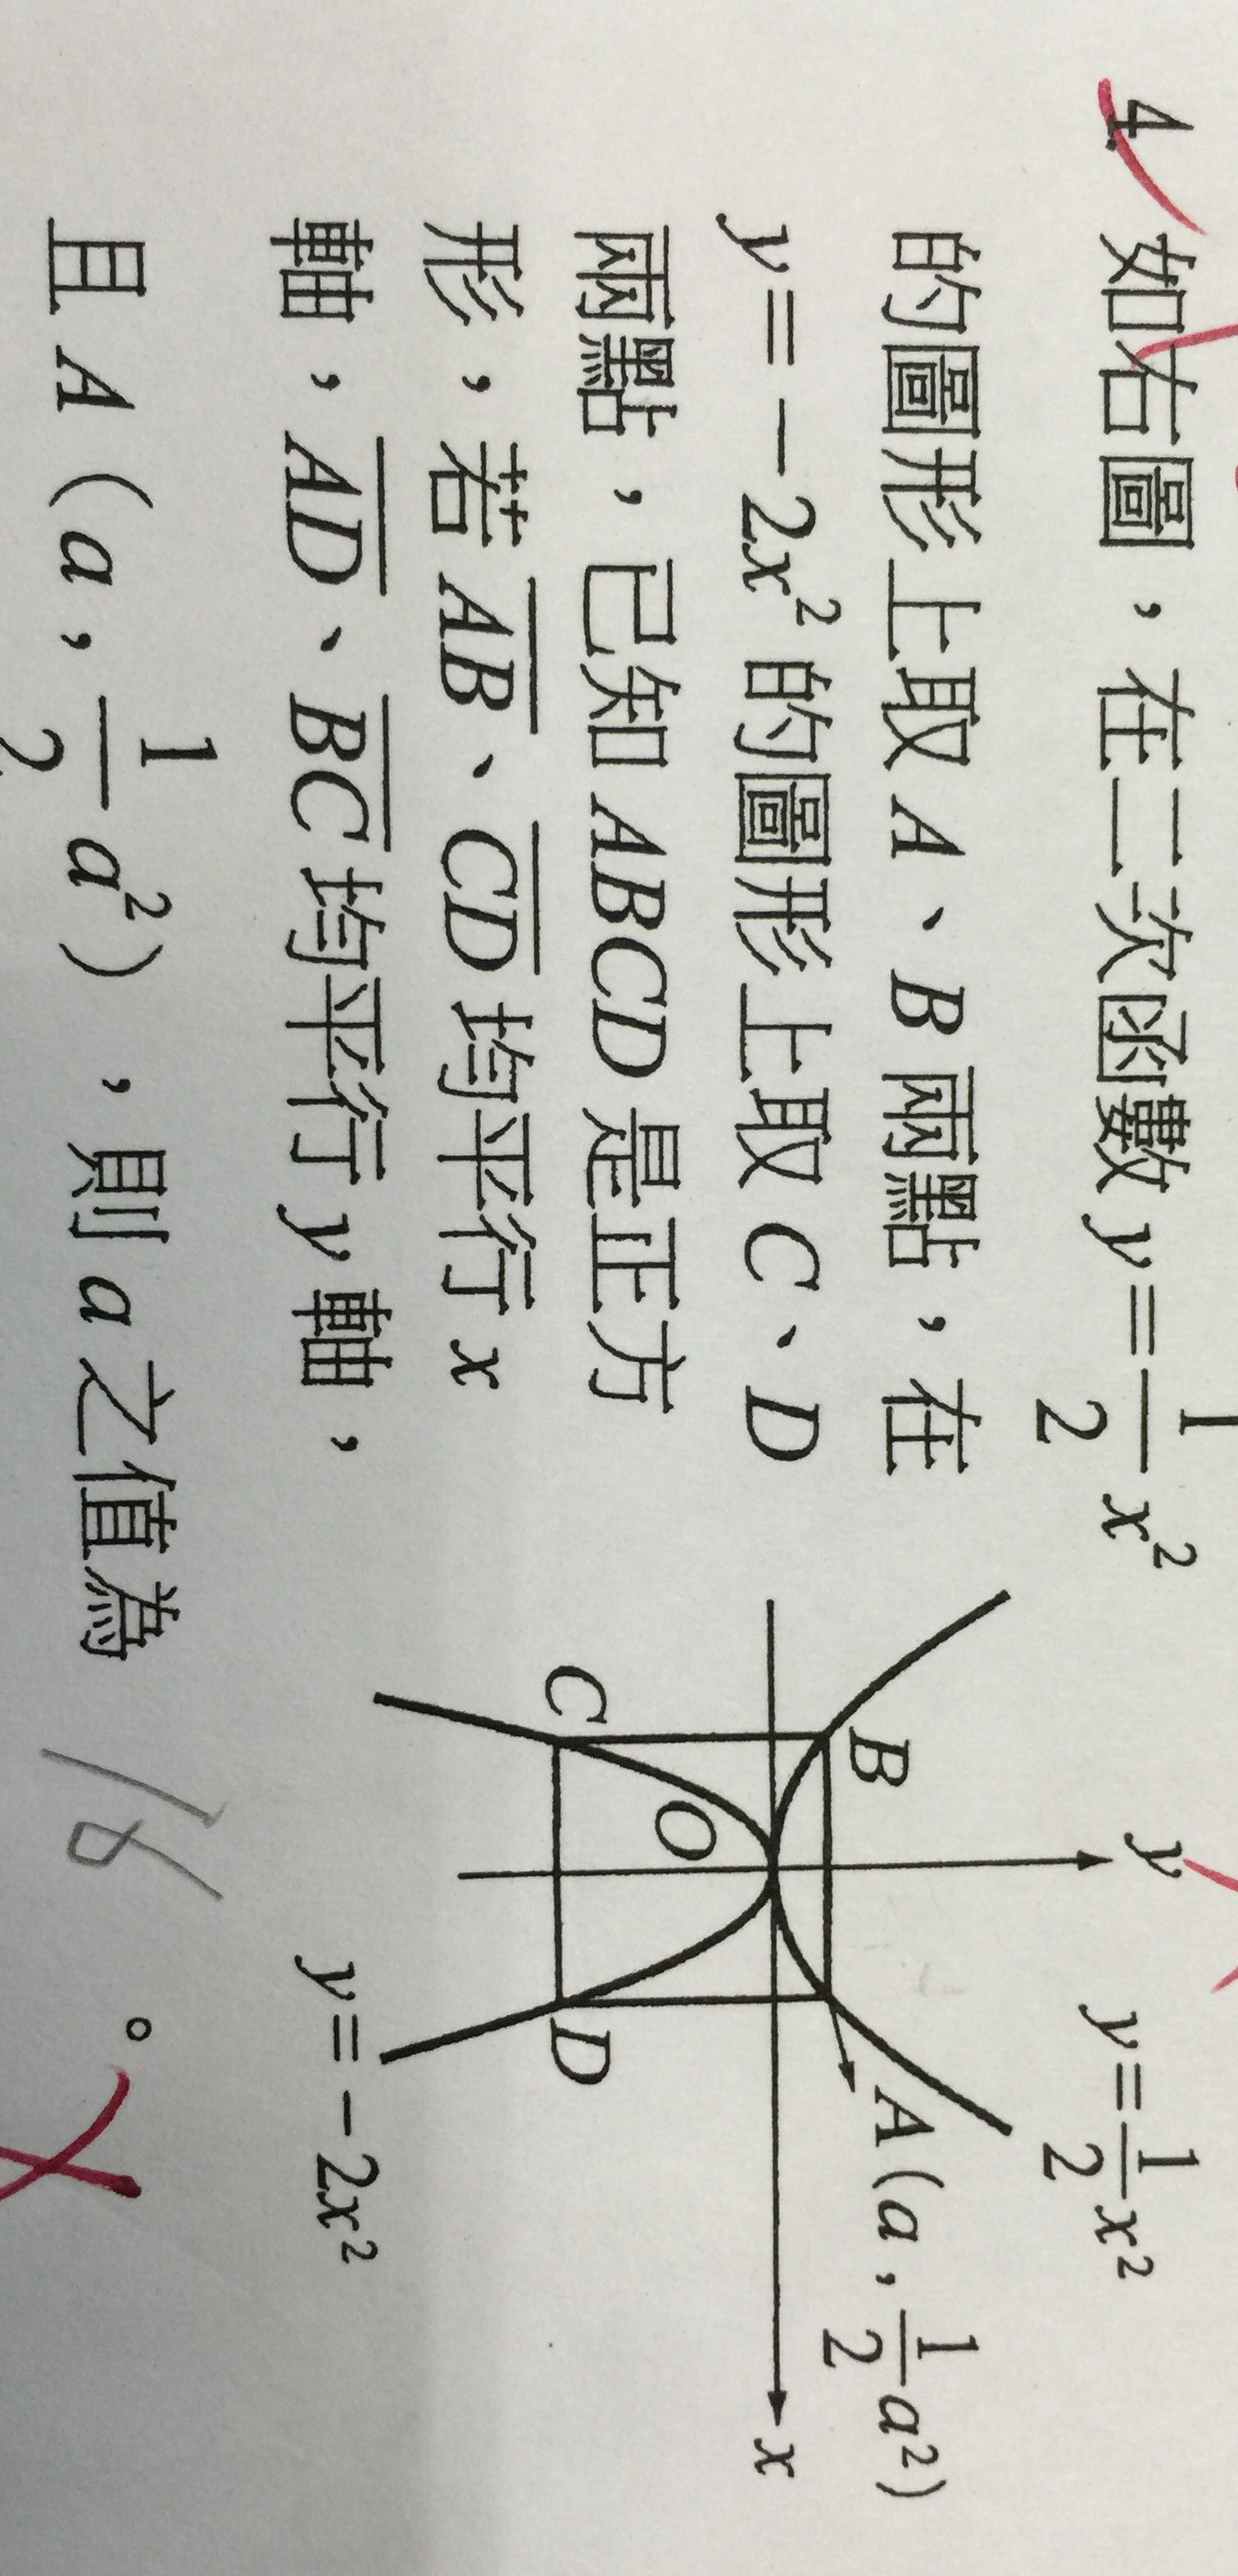 4. 如右圖，在二次函數 y＝1/2 x²
的圖形上取 A、B 兩點，在
y＝－2x² 的圖形上取 C、D
兩點，已知 ABCD 是正方
形，若 AB、CD 均平行 x
軸，AD、BC 均平行 y 軸，
且 A（a，1/2 a²），則 a 之值為 16 。
y
y＝1/2 x²
B
A（a，1/2 a²）
x
O
C
D
y＝－2x²